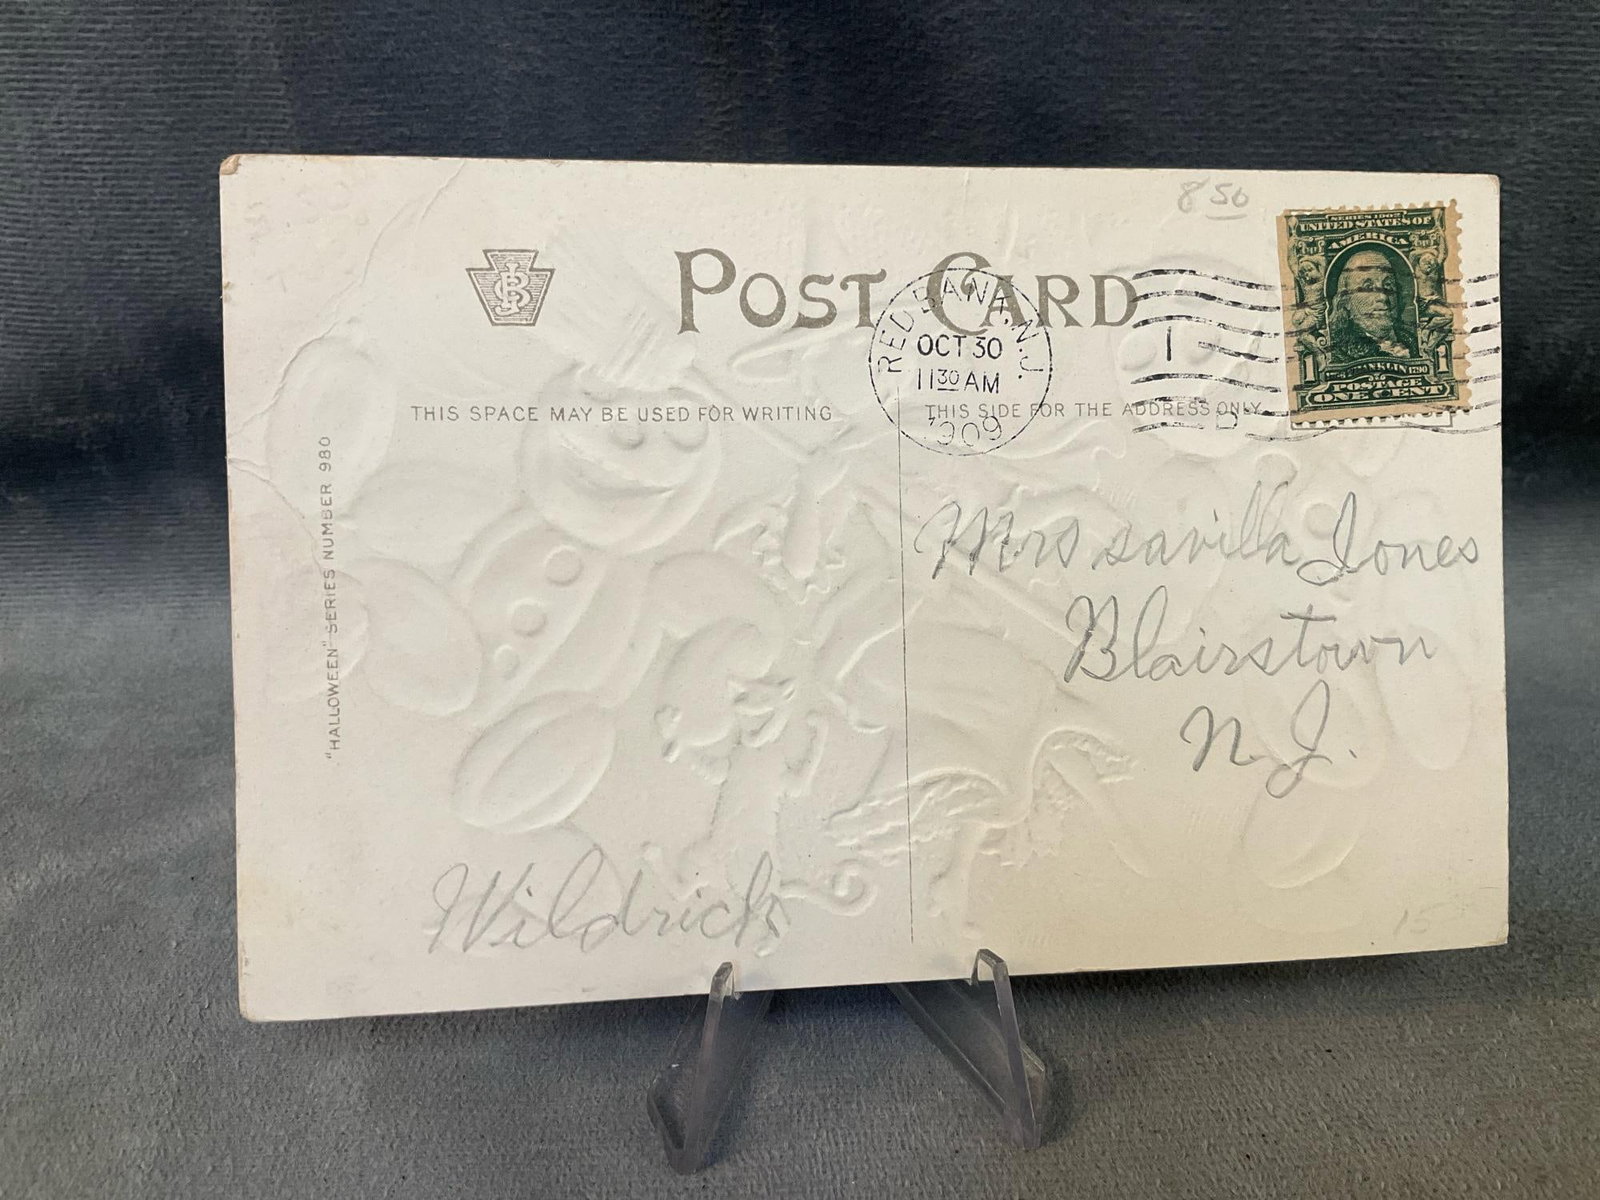 8 50
SERIES 1902
UNITED STATES OF
AMERICA
1 FRANKLIN 1790 1
POSTAGE
ONE CENT
POST CARD
RED BANK, N.J.
OCT 30
11 30 AM
1909
1
D
THIS SPACE MAY BE USED FOR WRITING
THIS SIDE FOR THE ADDRESS ONLY
"HALLOWEEN" SERIES NUMBER 980
Mrs savilla Jones
Blairstown
N. J.
Wildrick
15